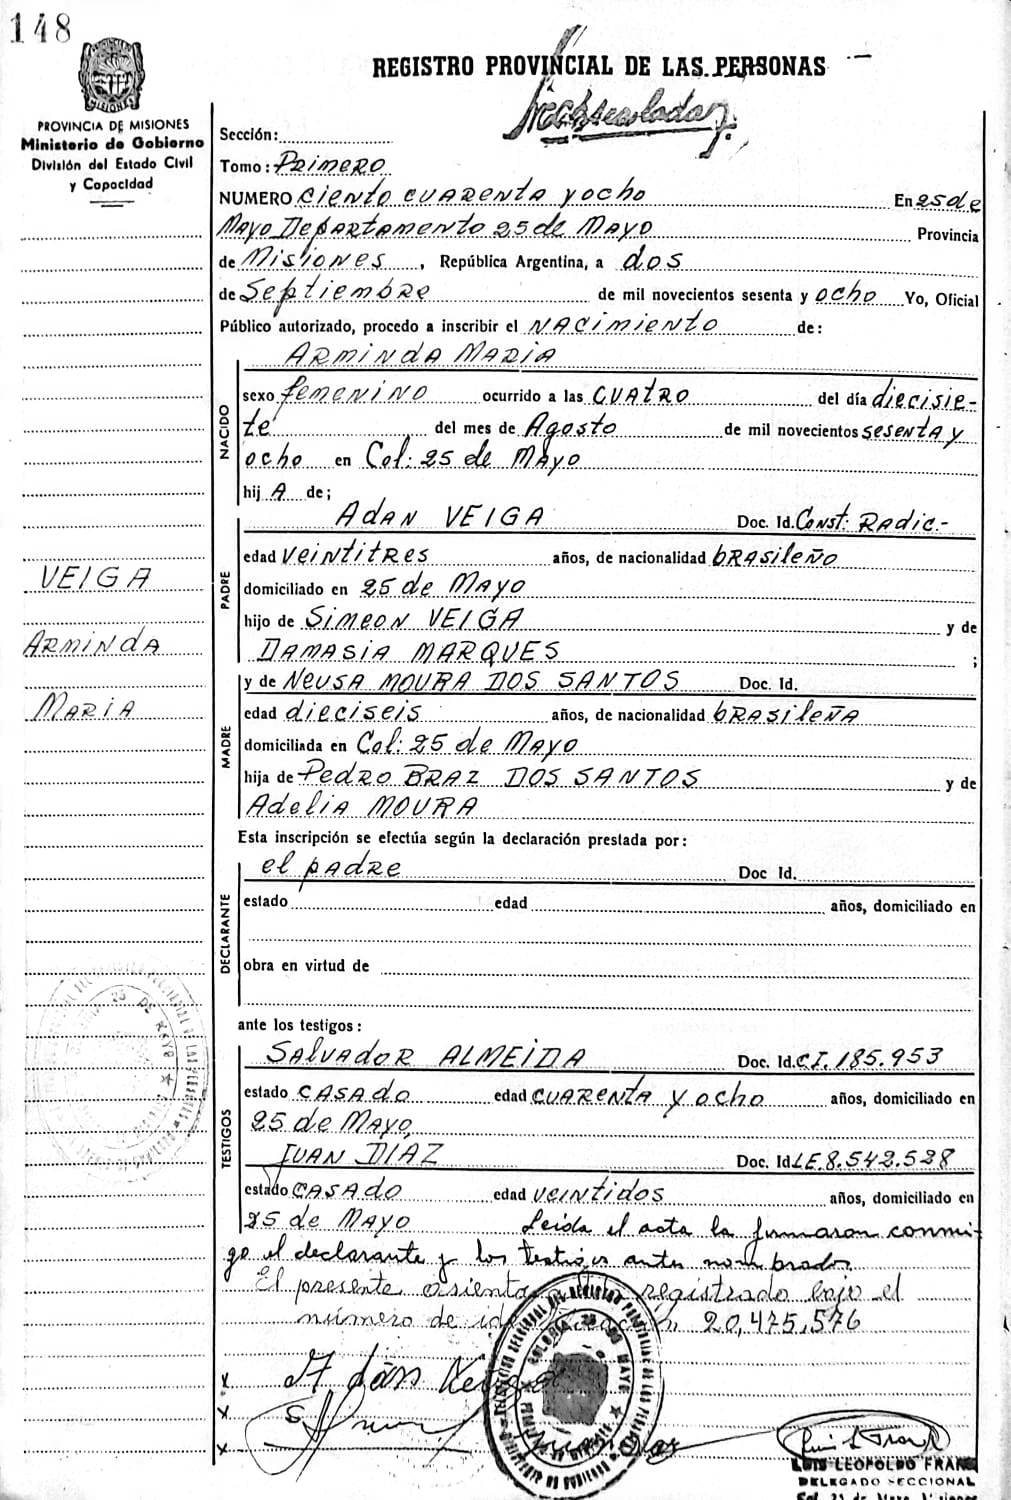 148
REGISTRO PROVINCIAL DE LAS PERSONAS
PROVINCIA DE MISIONES
Ministerio de Gobierno
División del Estado Civil
y Capacidad
Sección:
Tomo: Primero
NUMERO Ciento cuarenta y ocho En 25 de
Mayo Departamento 25 de Mayo Provincia
de Misiones, República Argentina, a dos
de Septiembre de mil novecientos sesenta y ocho Yo, Oficial
Público autorizado, procedo a inscribir el nacimiento de:
Arminda Maria
NACIDO
sexo femenino ocurrido a las cuatro del día diecisie-
te del mes de Agosto de mil novecientos sesenta y
ocho en Col: 25 de Mayo
hij a de;
Adan VEIGA Doc. Id. Const: Radic.-
PADRE
edad veintitres años, de nacionalidad brasileño
domiciliado en 25 de Mayo
hijo de Simeon VEIGA y de
Damasia MARQUES ;
y de Neusa MOURA DOS SANTOS Doc. Id.
MADRE
edad dieciseis años, de nacionalidad brasileña
domiciliada en Col: 25 de Mayo
hija de Pedro BRAZ DOS SANTOS y de
Adelia MOURA
VEIGA
Arminda
Maria
Esta inscripción se efectúa según la declaración prestada por:
el padre Doc Id.
DECLARANTE
estado edad años, domiciliado en
obra en virtud de
ante los testigos:
Salvador ALMEIDA Doc. Id. C.I. 185.953
TESTIGOS
estado casado edad cuarenta y ocho años, domiciliado en
25 de Mayo,
Juan DIAZ Doc. Id. L.E. 8.542.528
estado casado edad veintidos años, domiciliado en
25 de Mayo Leida el acta la firmaron conmi-
go el declarante y los testigos antes nombrados
El presente registrado bajo el
número de 20,475,576
x
x
x
LUIS LEOPOLDO FRANK
DELEGADO SECCIONAL
Col. 25 de Mayo, Misiones